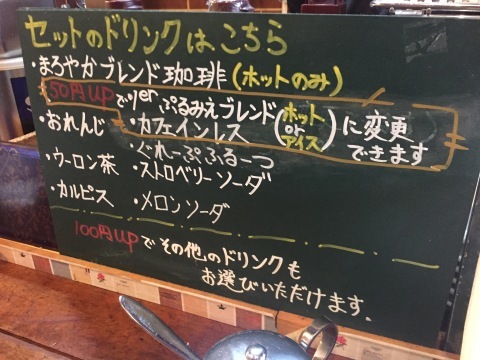 セットのドリンクはこちら
・まろやかブレンド珈琲(ホットのみ)
50円UPで1er.ぷるみえブレンド
・カフェインレス
(ホット or アイス)に変更できます
・おれんじ ・ぐれーぷふるーつ
・ウーロン茶 ・ストロベリーソーダ
・カルピス ・メロンソーダ
100円UPでその他のドリンクも
お選びいただけます。